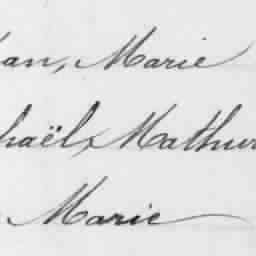 an, Marie
haël, Mathur
Marie